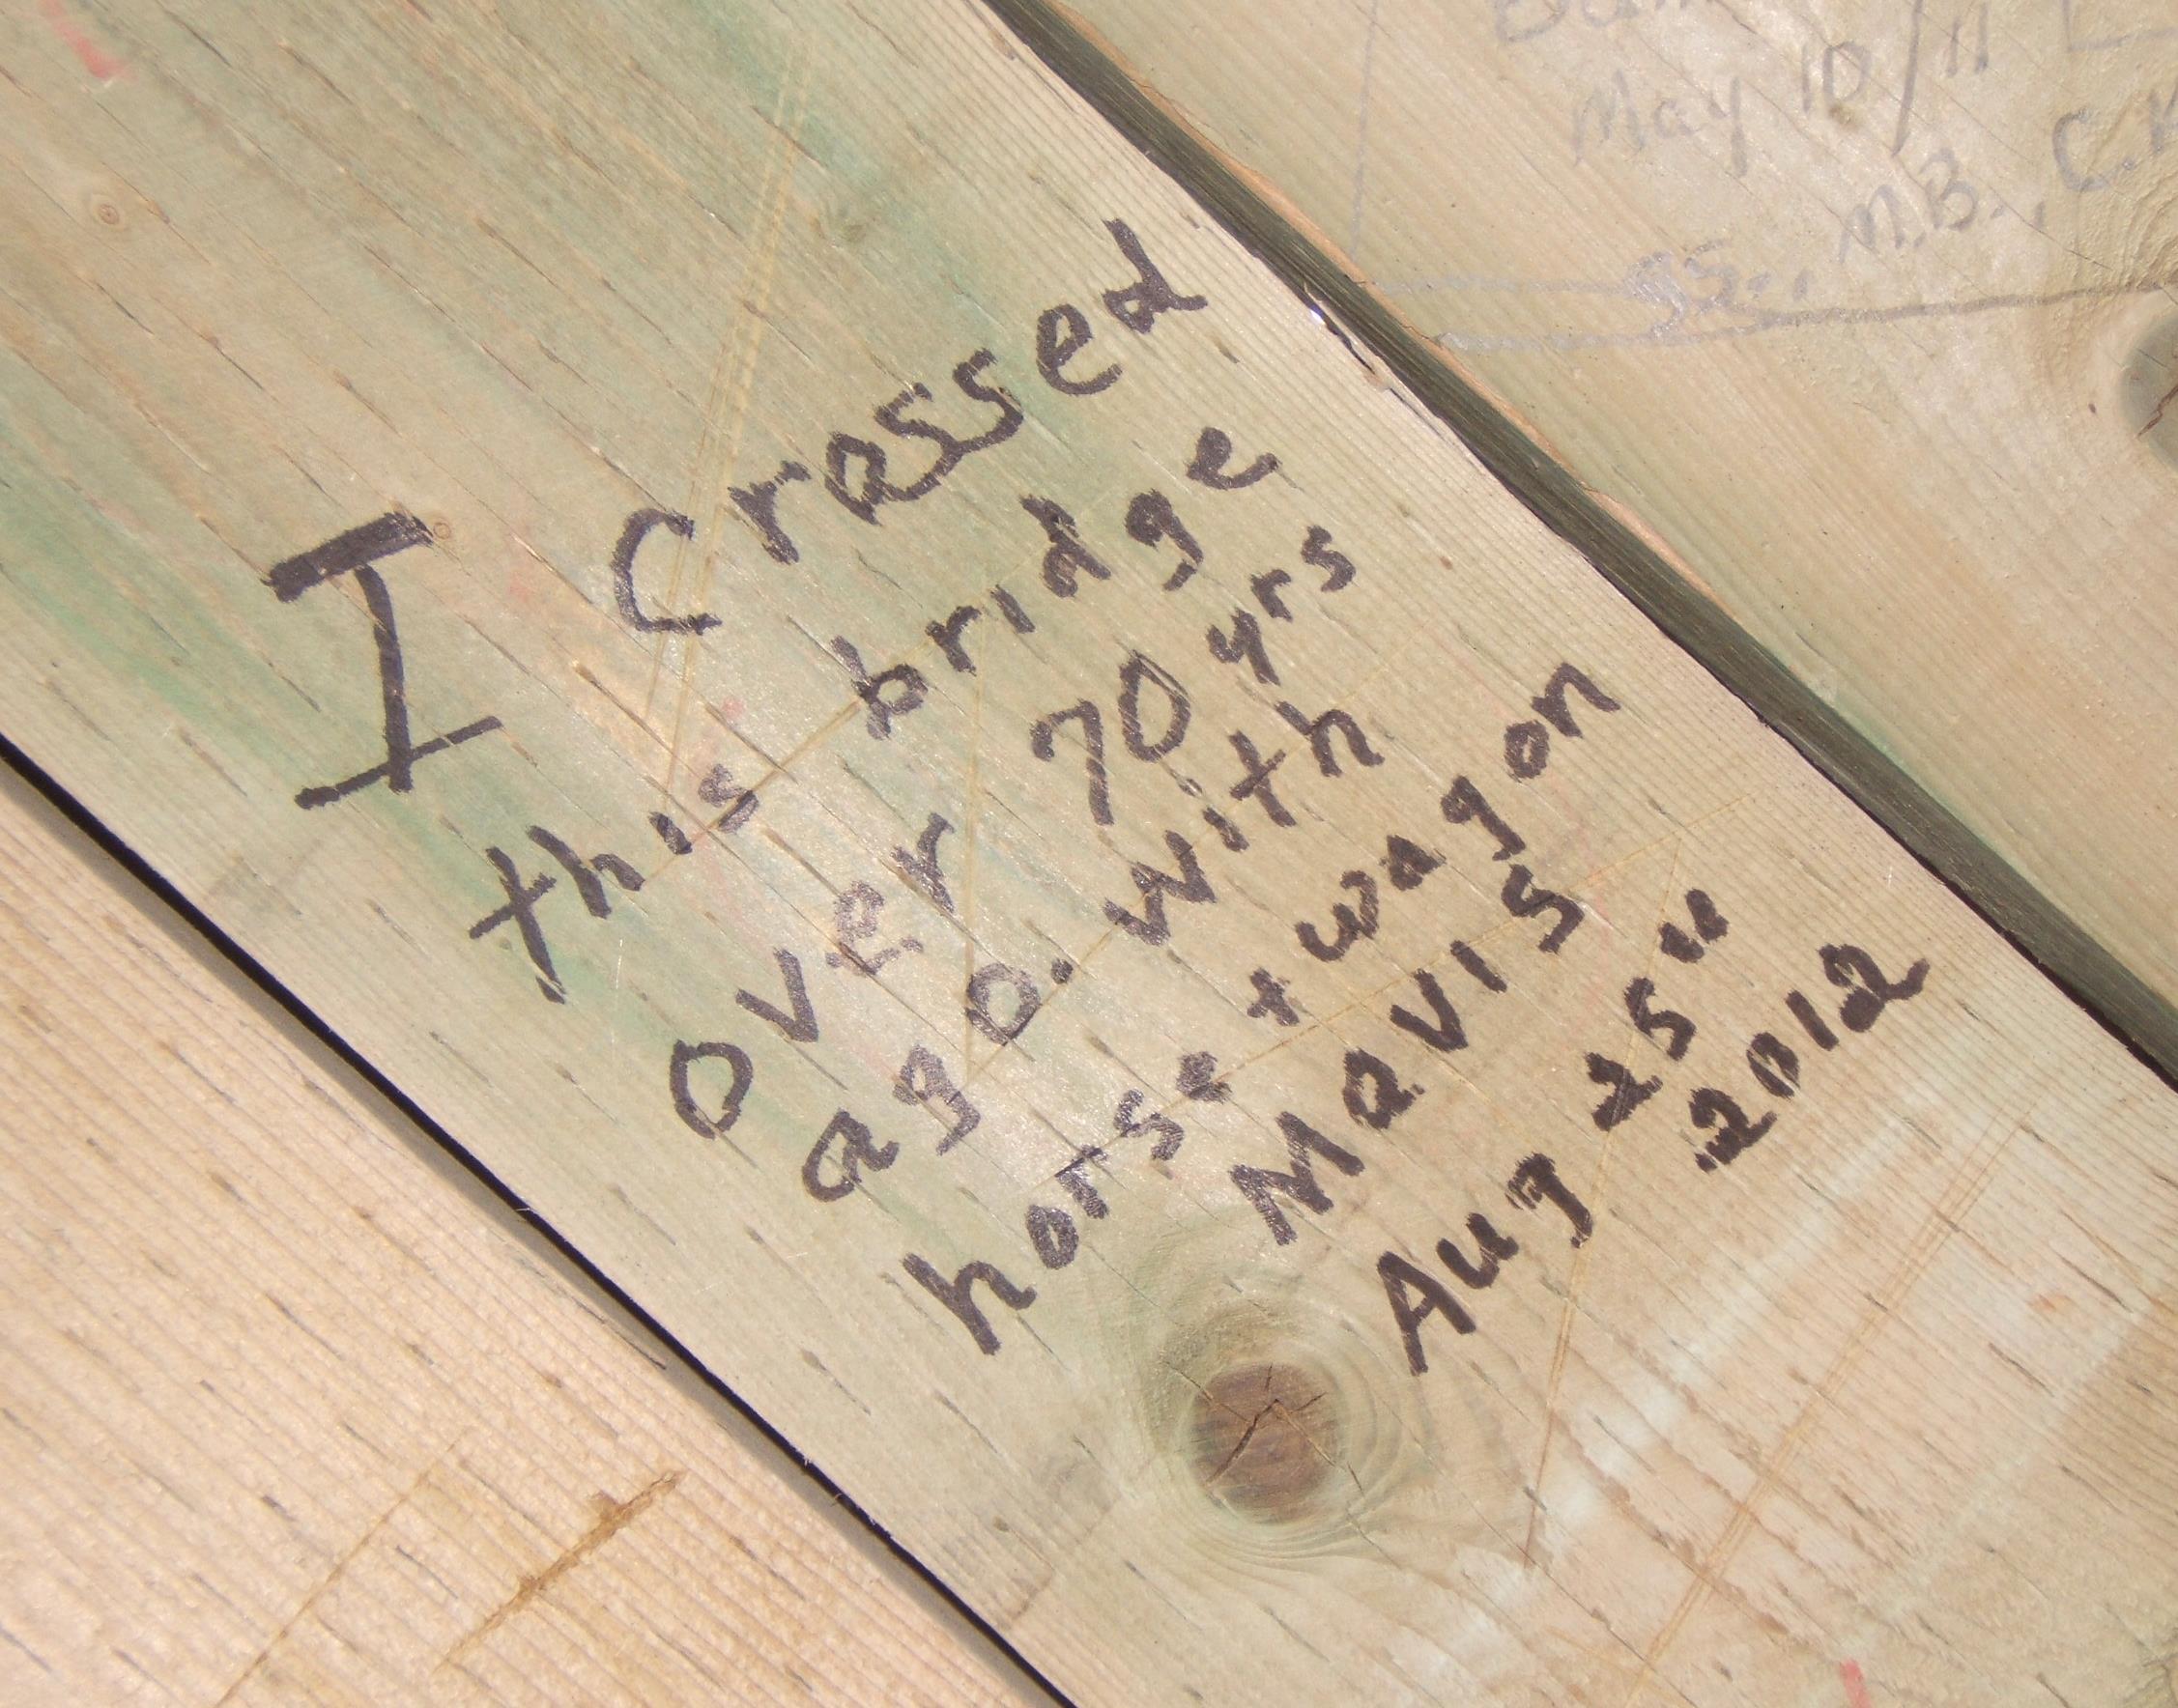 I crossed
this bridge
over 70 yrs
ago. with
horse + wagon
Mavis
Aug 25"
2012
May 10/11
M.B.